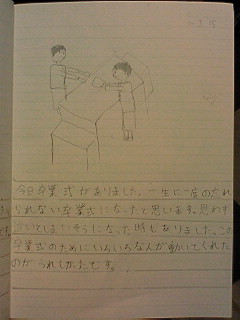 今日卒業式がありました。一生に一度の忘れ
られない卒業式になったと思います。思わず
泣いてしまいそうになった時もありました。この
卒業式のためにいろいろなんが動いてくれた
のがうれしかったです。